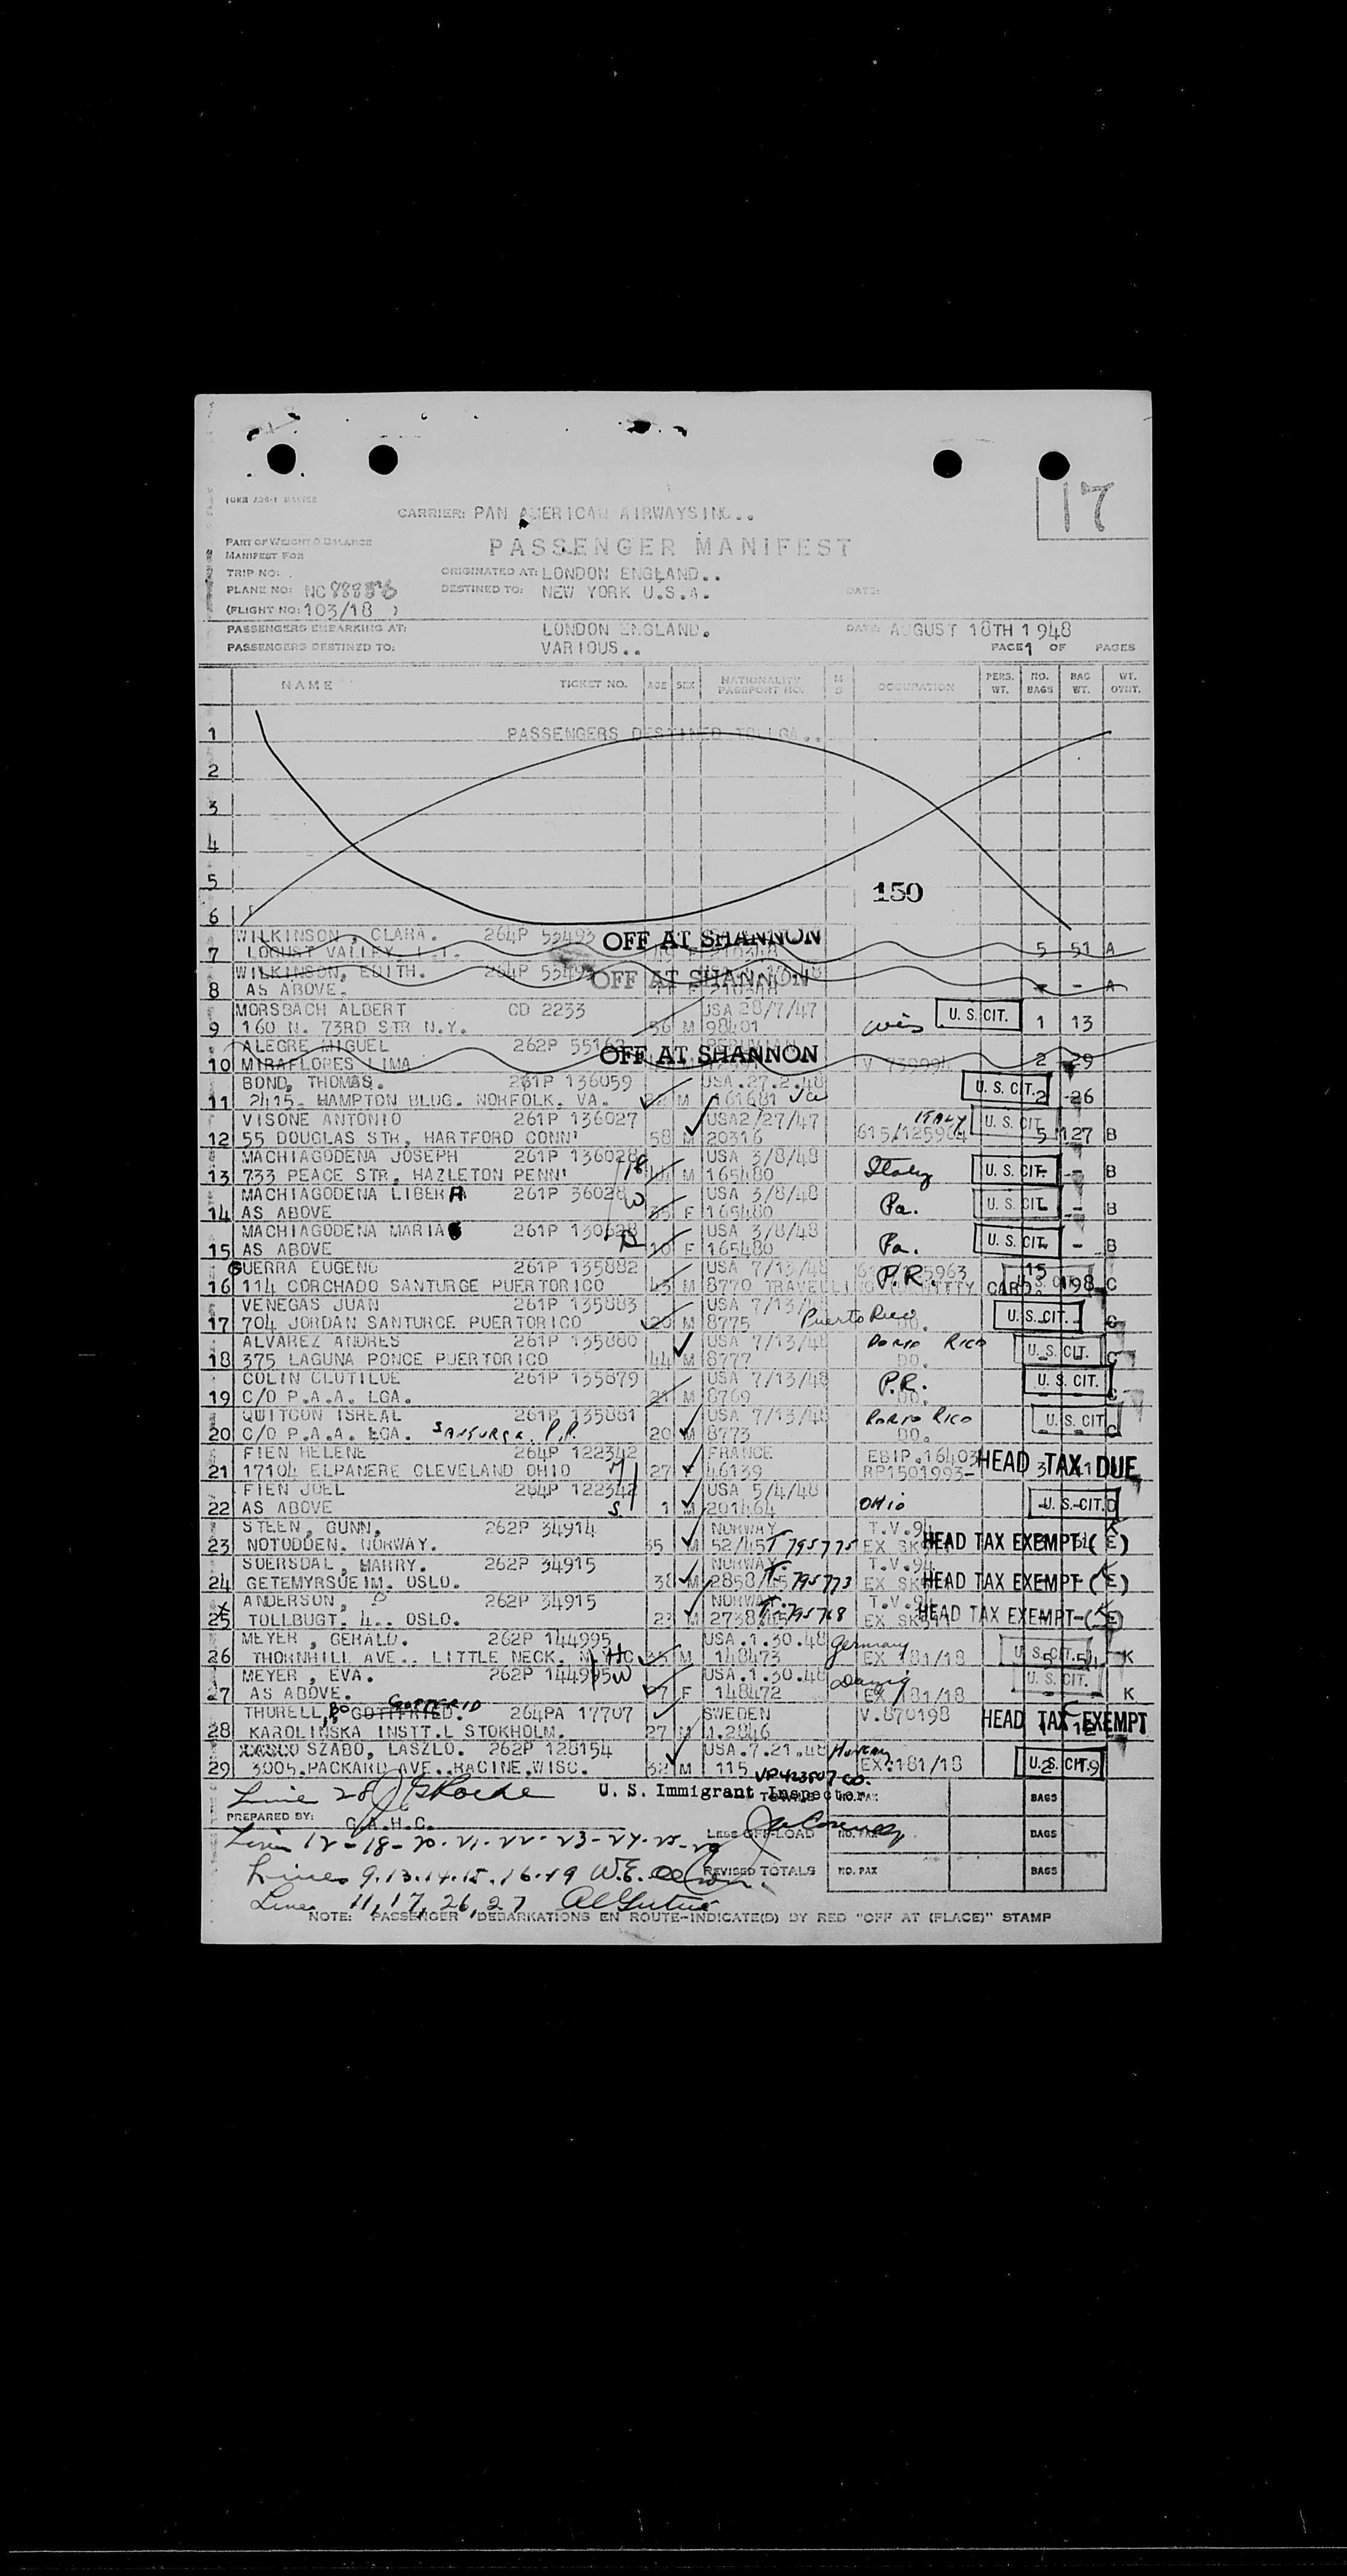 17
CARRIER: PAN AMERICAN AIRWAYS INC..
PART OF WEIGHT & BALANCE
MANIFEST FOR
PASSENGER MANIFEST
TRIP NO:
ORIGINATED AT: LONDON ENGLAND..
PLANE NO: NC DESTINED TO: NEW YORK U.S.A. DATE:
(FLIGHT NO: 103/18 )
PASSENGERS EMBARKING AT: LONDON ENGLAND. DATE: AUGUST 18TH 1948
PASSENGERS DESTINED TO: VARIOUS.. PAGE 1 OF PAGES
NAME TICKET NO. AGE SEX NATIONALITY PASSPORT NO. M S OCCUPATION PERS. WT. NO. BAGS BAG WT. WT. OVRT.
1 PASSENGERS DESTINED TO LGA..
2
3
4
5 150
6
WILKINSON, CLARA. 264P 53493 OFF AT SHANNON
7 LOCUST VALLEY. L.I. 5 51 A
WILKINSON, EDITH. 264P OFF AT SHANNON
8 AS ABOVE. - - A
MORSBACH ALBERT CD 2233 USA 28/7/47 U. S. CIT.
9 160 N. 73RD STR N.Y. 36 M 98401 Wis 1 13
ALEGRE MIGUEL 262P OFF AT SHANNON
10 MIRAFLORES LIMA 2 29
BOND, THOMAS. 261P 136059 USA.27.2.48 U. S. CIT.
11 2415. HAMPTON BLDG. NORFOLK. VA. M 161681 Va 2 -26
VISONE ANTONIO 261P 136027 USA2/27/47 ITALY U. S. CIT.
12 55 DOUGLAS STR, HARTFORD CONN' 58 M 20316 615/125964 5 127 B
MACHIAGODENA JOSEPH 261P 136028 USA 3/8/48
13 733 PEACE STR, HAZLETON PENN' M 165480 Italy U. S. CIT. - B
MACHIAGODENA LIBERA 261P 36028 W USA 3/8/48
14 AS ABOVE 35 F 165480 Pa. U. S. CIT. - B
MACHIAGODENA MARIA 261P USA 3/8/48
15 AS ABOVE 10 F 165480 Pa. U. S. CIT. - B
GUERRA EUGENO 261P 135882 USA 7/13/48 P.R. 15
16 114 CORCHADO SANTURGE PUERTORICO 43 M 8770 TRAVELLING IDENTITY CARD. 198 C
VENEGAS JUAN 261P 135883 USA 7/13/48 Puerto Rico
17 704 JORDAN SANTURCE PUERTORICO 20 M 8775 DO. U. S. CIT. C
ALVAREZ ANDRES 261P 135880 USA 7/13/48 PORTO RICO
18 375 LAGUNA PONCE PUERTORICO 44 M 8777 DO. U. S. CIT. C
COLIN CLOTILDE 261P 135879 USA 7/13/48 P.R. U. S. CIT.
19 C/O P.A.A. LGA. 21 M 8769 DO. C
QWITCON ISREAL 261P 135881 USA 7/13/48 PORTO RICO U. S. CIT.
20 C/O P.A.A. LGA. SANTURCE. P.R. 20 M 8773 DO. C
FIEN HELENE 264P 122342 FRANCE EBIP.16403 HEAD TAX DUE
21 17104 ELPANERE CLEVELAND OHIO M 27 F 46139 RP1501993-
FIEN JOEL 264P 122342 USA 5/4/48
22 AS ABOVE S 1 M 201464 OHIO U. S. CIT. D
STEEN, GUNN, 262P 34914 NORWAY T.V.94
23 NOTODDEN. NORWAY. 35 M 52/45 T 795775 HEAD TAX EXEMPT (E)
SOERSDAL, HARRY. 262P 34915 NORWAY. T.V.94
24 GETEMYRSUEIM. OSLO. 38 M 2858 T-795773 HEAD TAX EXEMPT (E)
ANDERSON, 262P 34915 NORWAY. T.V.
25 TOLLBUGT. 4.. OSLO. 23 M 2738 T-795768 HEAD TAX EXEMPT (E)
MEYER, GERALD. 262P 144995 USA.1.30.48 Germany
26 THORNHILL AVE.. LITTLE NECK. HC M 148473 EX 181/18 U. S. CIT. K
MEYER, EVA. 262P 144995 W USA.1.30.48 Danzig U. S. CIT.
27 AS ABOVE. F 148472 EX 181/18 K
THORELL, BO GOTTFRIED. GOTTFRID 264PA 17707 SWEDEN V.870198 HEAD TAX EXEMPT
28 KAROLINSKA INSTT.L STOKHOLM. 27 M 1.2846
SZABO, LASZLO. 262P 128154 USA.7.21.48 Hungary
29 3005.PACKARD AVE..RACINE.WISC. 32 M 115 EX.181/18 U. S. CIT.
Line 28 U. S. Immigrant Inspector
TOTALS NO. PAX BAGS
PREPARED BY: G.A.H.C.
Line 12-18-20-21-22-23-24-25-29 LESS OFF-LOAD NO. PAX BAGS
Lines 9.13.14.15.16.19 W.E. REVISED TOTALS NO. PAX BAGS
Line 11, 17, 26, 27
NOTE: PASSENGER DEBARKATIONS EN ROUTE-INDICATE(D) BY RED "OFF AT (PLACE)" STAMP